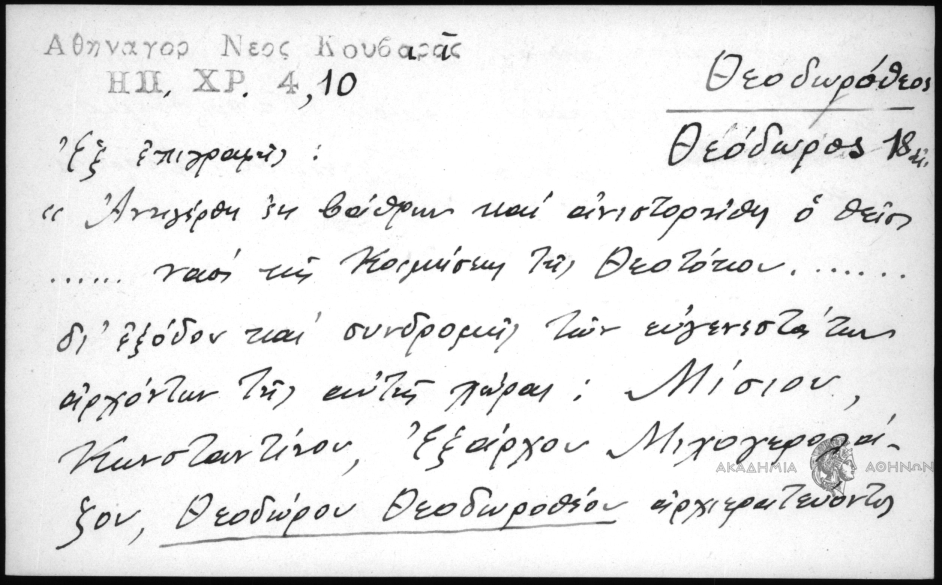 Αθηναγορ Νεος Κουβαρᾶς
ΗΠ. ΧΡ. 4,10
Θεοδωρόθεος
Θεόδωρος 18
Ἐξ ἐπιγραφῆς :
" Ἀνηγέρθη ἐκ βάθρων καί ἀνιστορήθη ὁ θεῖος
...... ναός τῆς Κοιμήσεως τῆς Θεοτόκου .......
δι' ἐξόδου καί συνδρομῆς τῶν εὐγενεστάτων
ἀρχόντων τῆς αὐτῆς χώρας : Μίσιου,
Κωνσταντίνου, Ἐξάρχου
ΑΚΑΔΗΜΙΑ ΑΘΗΝΩΝ
ξου, Θεοδώρου Θεοδωροθέου ἀρχιερατεύοντος